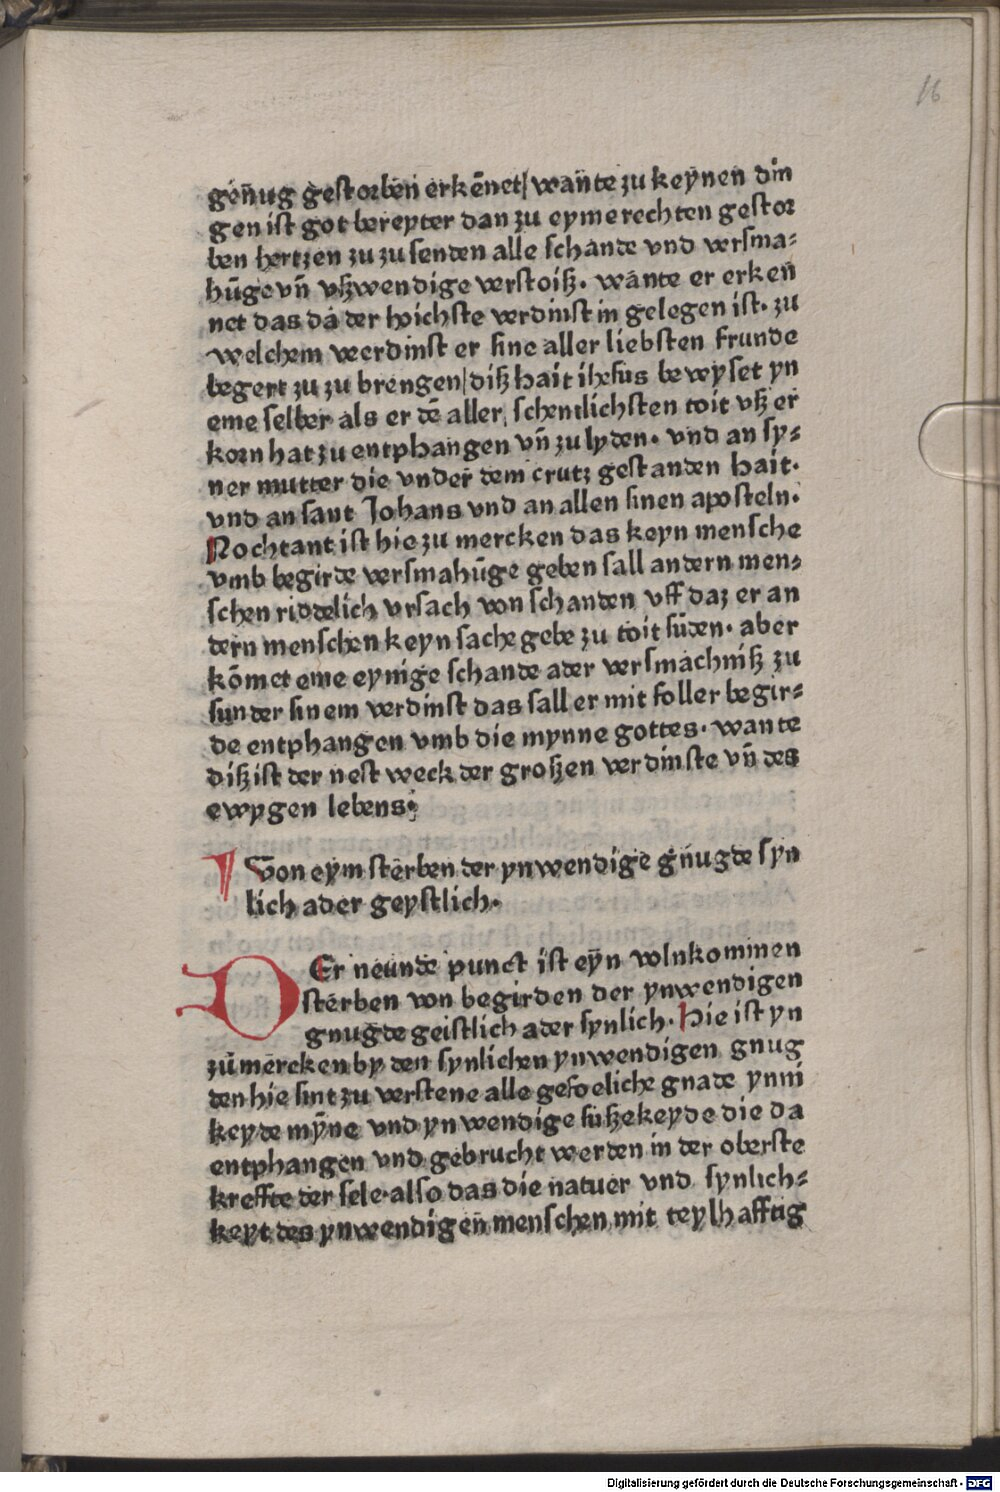 16
genug gestorben erkēnet/ wante zu keynen din
gen ist got bereyter dan zu eyme rechten gestor
ben hertzen zu zu senden alle schande vnd versma-
hūge vn̄ vßwendige verstoiß. wante er erken
net das da der hoichste verdinst in gelegen ist. zu
welchem veerdinst er sine aller liebsten frunde
begert zu zu brengen/ diß hait ihesus bewyset yn
eme selber als er dē aller schentlichsten toit vß er
korn hat zu entphangen vn̄ zu lyden. vnd an sy-
ner mutter die vnder dem crutz gestanden hait.
vnd an sant Johans vnd an allen sinen aposteln.
Nochtant ist hie zu mercken das keyn mensche
vmb begirde versmahūge geben sall andern men-
schen riddelich vrsach von schanden vff daz er an
dern menschen keyn sache gebe zu toit sūden. aber
kōmet eme eynige schande ader versmachniß zu
sunder sinem verdinst das sall er mit foller begir-
de entphangen vmb die mynne gottes. wante
diß ist der nest weck der großen verdinste vn̄ des
ewygen lebens.
Von eym sterben der ynwendige gnugde syn
lich ader geystlich.
DEr neunde punct ist eyn volnkommen
sterben von begirden der ynwendigen
gnugde geistlich ader synlich. Hie ist yn
zū mercken by den synlichen ynwendigen gnug
den hie sint zu verstene alle gefoeliche gnade ynni
keyde mȳne vnd ynwendige sußekeyde die da
entphangen vnd gebrucht werden in der oberste
kreffte der sele. also das die natuer vnd synlich-
keyt des ynwendigen menschen mit teylhafftig
Digitalisierung gefördert durch die Deutsche Forschungsgemeinschaft - DFG